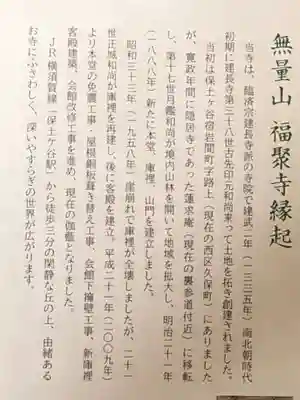 無量山 福聚寺縁起
当寺は、臨済宗建長寺派の寺院で建武二年（一三三五年）南北朝時代
初期に建長寺第三十八世古先印元和尚来って土地を拓き創建されました。
当初は保土ヶ谷宿岩間町字路上（現在の西区久保町）にありました
が、寛政年間に隠居寺であった蓮求庵（現在の裏参道付近）に移転
し、第十七世月鑑和尚が境内山林を開いて地域を拡大し、明治二十一年
（一八八八年）新たに本堂、庫裡、山門を建立しました。
昭和三十三年（一九五八年）崖崩れで庫裡が全壊しましたが、二十一
世正城和尚が庫裡を再建し、後に客殿を建立。平成二十一年（二〇〇九年）
より本堂の免震工事、屋根銅板葺き替え工事、会館下擁壁工事、新庫裡
客殿建築、会館改修工事を進め、現在の伽藍となりました。
ＪＲ横須賀線「保土ヶ谷駅」から徒歩三分の閑静な丘の上、由緒ある
お寺にふさわしく、深いやすらぎの世界が広がります。